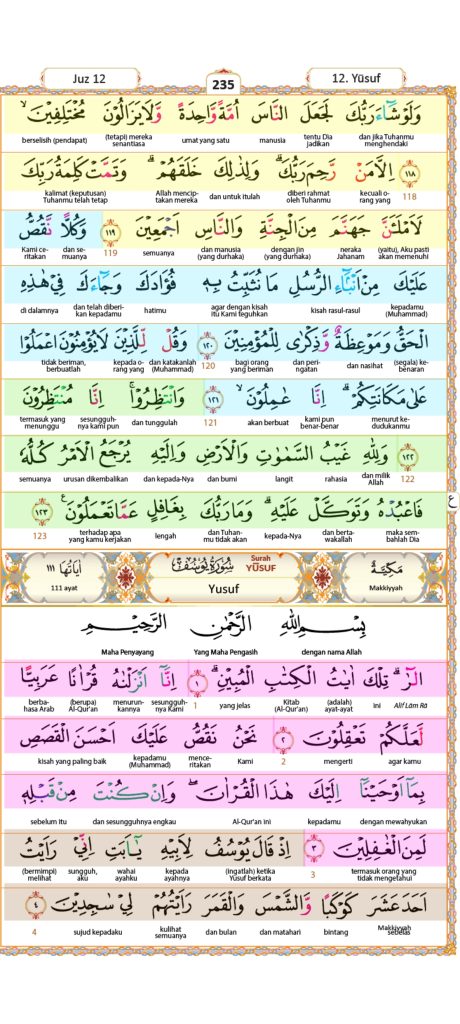 Juz 12
235
12. Yūsuf
وَلَوْ شَآءَ رَبُّكَ لَجَعَلَ النَّاسَ اُمَّةً وَّاحِدَةً وَّلَا يَزَالُوْنَ مُخْتَلِفِيْنَۙ
dan jika Tuhanmu menghendaki tentu Dia jadikan manusia umat yang satu (tetapi) mereka senantiasa berselisih (pendapat)
١١٨ اِلَّا مَنْ رَّحِمَ رَبُّكَۗ وَلِذٰلِكَ خَلَقَهُمْۗ وَتَمَّتْ كَلِمَةُ رَبِّكَ
118 kecuali orang yang diberi rahmat oleh Tuhanmu dan untuk itulah Allah menciptakan mereka kalimat (keputusan) Tuhanmu telah tetap
لَاَمْلَـَٔنَّ جَهَنَّمَ مِنَ الْجِنَّةِ وَالنَّاسِ اَجْمَعِيْنَ ١١٩ وَكُلًّا نَّقُصُّ
(yaitu), Aku pasti akan memenuhi neraka Jahanam dengan jin (yang durhaka) dan manusia (yang durhaka) semuanya 119 dan semuanya Kami ceritakan
عَلَيْكَ مِنْ اَنْۢبَاۤءِ الرُّسُلِ مَا نُثَبِّتُ بِهٖ فُؤَادَكَ وَجَاۤءَكَ فِيْ هٰذِهِ
kepadamu (Muhammad) kisah rasul-rasul agar dengan kisah itu Kami teguhkan hatimu dan telah diberikan kepadamu di dalamnya
الْحَقُّ وَمَوْعِظَةٌ وَّذِكْرٰى لِلْمُؤْمِنِيْنَ ١٢٠ وَقُلْ لِّلَّذِيْنَ لَا يُؤْمِنُوْنَ اعْمَلُوْا
(segala) kebenaran dan nasihat dan peringatan bagi orang yang beriman 120 dan katakanlah (Muhammad) kepada orang yang tidak beriman, berbuatlah
عَلٰى مَكَانَتِكُمْۗ اِنَّا عٰمِلُوْنَۙ ١٢١ وَانْتَظِرُوْاۚ اِنَّا مُنْتَظِرُوْنَ
menurut kedudukanmu kami pun benar-benar akan berbuat 121 dan tunggulah sesungguhnya kami pun termasuk yang menunggu
١٢٢ وَلِلّٰهِ غَيْبُ السَّمٰوٰتِ وَالْاَرْضِ وَاِلَيْهِ يُرْجَعُ الْاَمْرُ كُلُّهٗ
122 dan milik Allah rahasia langit dan bumi dan kepada-Nya urusan dikembalikan semuanya
فَاعْبُدْهُ وَتَوَكَّلْ عَلَيْهِۗ وَمَا رَبُّكَ بِغَافِلٍ عَمَّا تَعْمَلُوْنَ ١٢٣ ع
maka sembahlah Dia dan bertawakallah kepada-Nya dan Tuhanmu tidak akan lengah terhadap apa yang kamu kerjakan 123
مَكِّيَّةٌ Surah YŪSUF سُوْرَةُ يُوْسُفَ اٰيَاتُهَا ١١١
Makkiyyah Yusuf 111 ayat
بِسْمِ اللّٰهِ الرَّحْمٰنِ الرَّحِيْمِ
dengan nama Allah Yang Maha Pengasih Maha Penyayang
الۤرٰۗ تِلْكَ اٰيٰتُ الْكِتٰبِ الْمُبِيْنِۗ ١ اِنَّآ اَنْزَلْنٰهُ قُرْاٰنًا عَرَبِيًّا
Alif Lām Rā ini (adalah) ayat-ayat Kitab (Al-Qur'an) yang jelas 1 sesungguhnya Kami menurunkannya (berupa) Al-Qur'an berbahasa Arab
لَّعَلَّكُمْ تَعْقِلُوْنَ ٢ نَحْنُ نَقُصُّ عَلَيْكَ اَحْسَنَ الْقَصَصِ
agar kamu mengerti 2 Kami menceritakan kepadamu (Muhammad) kisah yang paling baik
بِمَآ اَوْحَيْنَآ اِلَيْكَ هٰذَا الْقُرْاٰنَۖ وَاِنْ كُنْتَ مِنْ قَبْلِهٖ
dengan mewahyukan kepadamu Al-Qur'an ini dan sesungguhnya engkau sebelum itu
لَمِنَ الْغٰفِلِيْنَ ٣ اِذْ قَالَ يُوْسُفُ لِاَبِيْهِ يٰٓاَبَتِ اِنِّيْ رَاَيْتُ
termasuk orang yang tidak mengetahui 3 (ingatlah) ketika Yusuf berkata kepada ayahnya wahai ayahku sungguh, aku (bermimpi) melihat
اَحَدَ عَشَرَ كَوْكَبًا وَّالشَّمْسَ وَالْقَمَرَ رَاَيْتُهُمْ لِيْ سٰجِدِيْنَ ٤
Makkiyyah
sebelas bintang dan matahari dan bulan kulihat semuanya sujud kepadaku 4